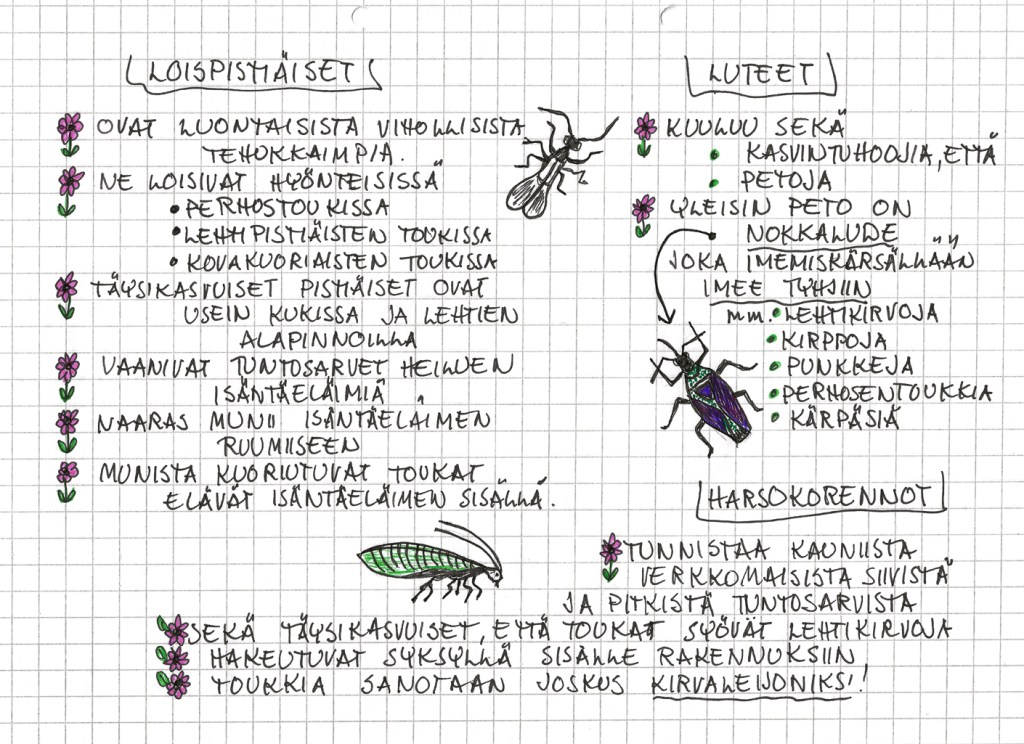 LOISPISTIÄISET
OVAT LUONTAISISTA VIHOLLISISTA
TEHOKKAIMPIA.
NE LOISIVAT HYÖNTEISISSÄ
• PERHOSTOUKISSA
• LEHTIPISTIÄISTEN TOUKISSA
• KOVAKUORIAISTEN TOUKISSA
TÄYSIKASVUISET PISTIÄISET OVAT
USEIN KUKISSA JA LEHTIEN
ALAPINNOILLA
VAANIVAT TUNTOSARVET HEILUEN
ISÄNTÄELÄIMIÄ
NAARAS MUNII ISÄNTÄELÄIMEN
RUUMIISEEN
MUNISTA KUORIUTUVAT TOUKAT
ELÄVÄT ISÄNTÄELÄIMEN SISÄLLÄ.
LUTEET
KUULUU SEKÄ
• KASVINTUHOOJIA, ETTÄ
• PETOJA
YLEISIN PETO ON
NOKKALUDE
JOKA IMEMISKÄRSÄLLÄÄN
IMEE TYHJIIN
mm. • LEHTIKIRVOJA
• KIRPPOJA
• PUNKKEJA
• PERHOSENTOUKKIA
• KÄRPÄSIÄ
HARSOKORENNOT
TUNNISTAA KAUNIISTA
VERKKOMAISISTA SIIVISTÄ
JA PITKISTÄ TUNTOSARVISTA
SEKÄ TÄYSIKASVUISET, ETTÄ TOUKAT SYÖVÄT LEHTIKIRVOJA
HAKEUTUVAT SYKSYLLÄ SISÄLLE RAKENNUKSIIN
TOUKKIA SANOTAAN JOSKUS KIRVALEIJONIKS!!